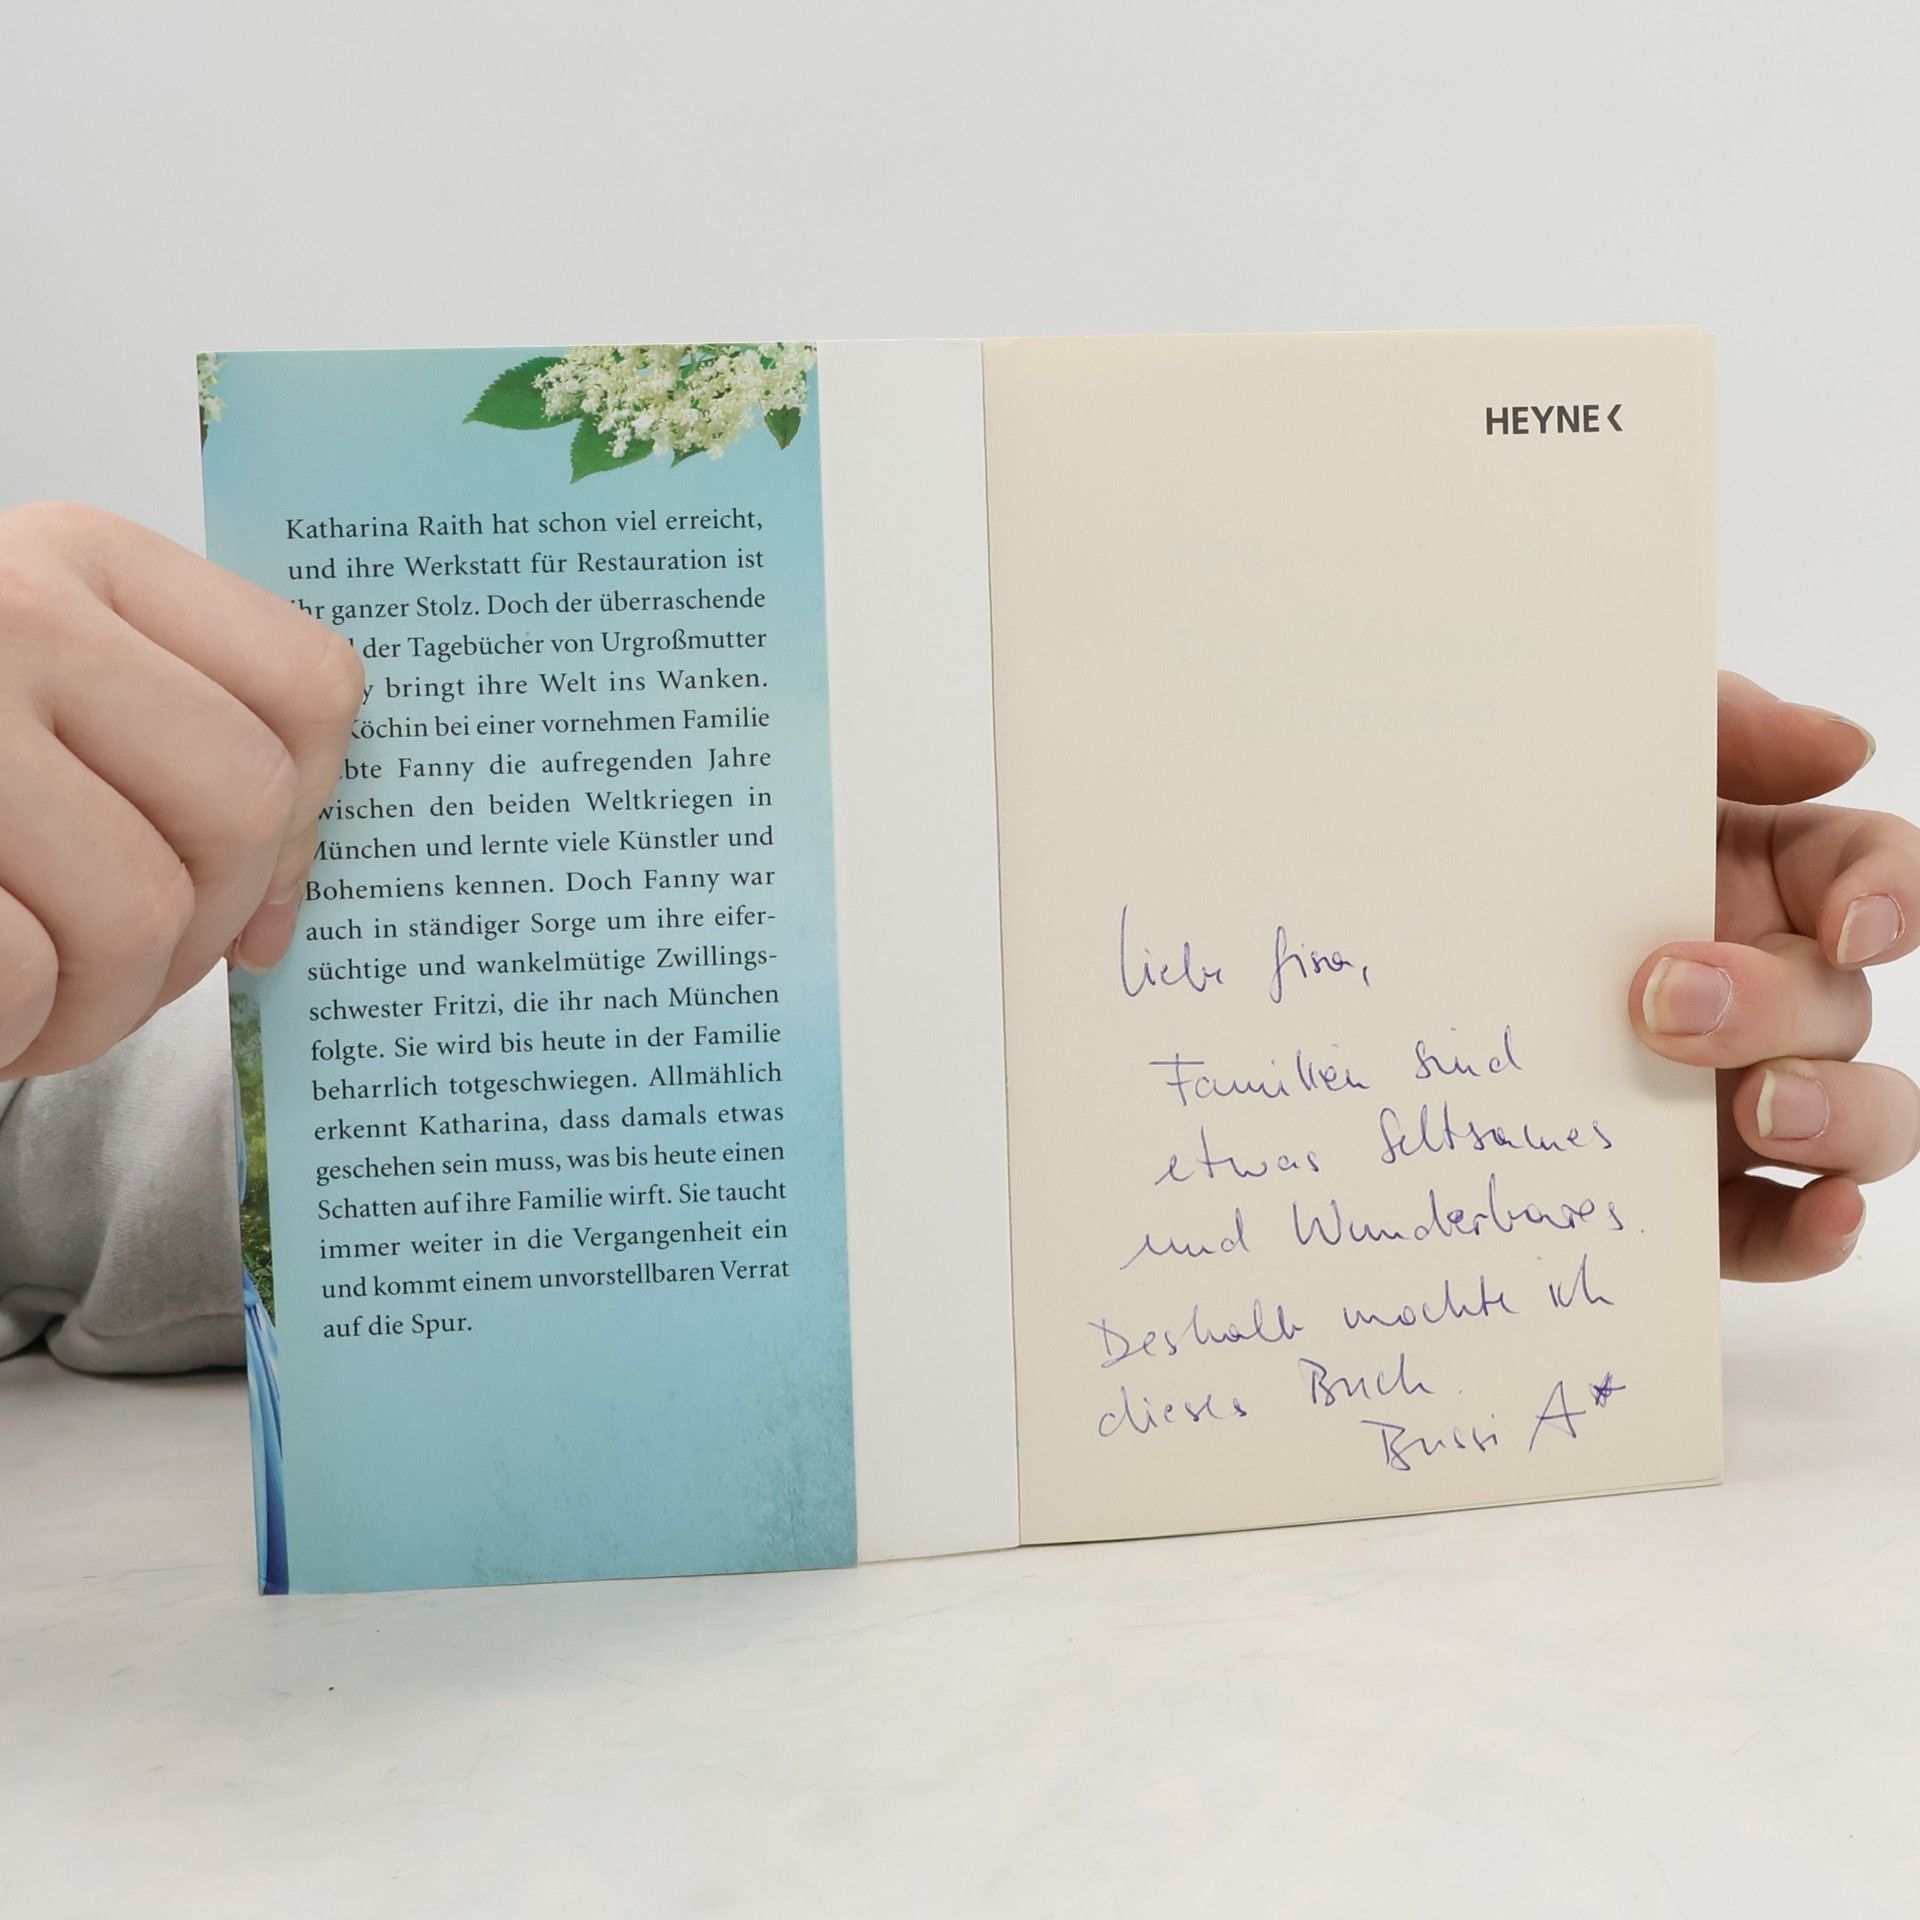 Katharina Raith hat schon viel erreicht,
und ihre Werkstatt für Restauration ist
hr ganzer Stolz. Doch der überraschende
der Tagebücher von Urgroßmutter
y bringt ihre Welt ins Wanken.
Köchin bei einer vornehmen Familie
ebte Fanny die aufregenden Jahre
wischen den beiden Weltkriegen in
München und lernte viele Künstler und
Bohemiens kennen. Doch Fanny war
auch in ständiger Sorge um ihre eifer-
süchtige und wankelmütige Zwillings-
schwester Fritzi, die ihr nach München
folgte. Sie wird bis heute in der Familie
beharrlich totgeschwiegen. Allmählich
erkennt Katharina, dass damals etwas
geschehen sein muss, was bis heute einen
Schatten auf ihre Familie wirft. Sie taucht
immer weiter in die Vergangenheit ein
und kommt einem unvorstellbaren Verrat
auf die Spur.
HEYNE
Liebe
Familien sind
etwas Seltsames
und Wunderbares.
Deshalb mochte ich
dieses Buch.
Bussi A*